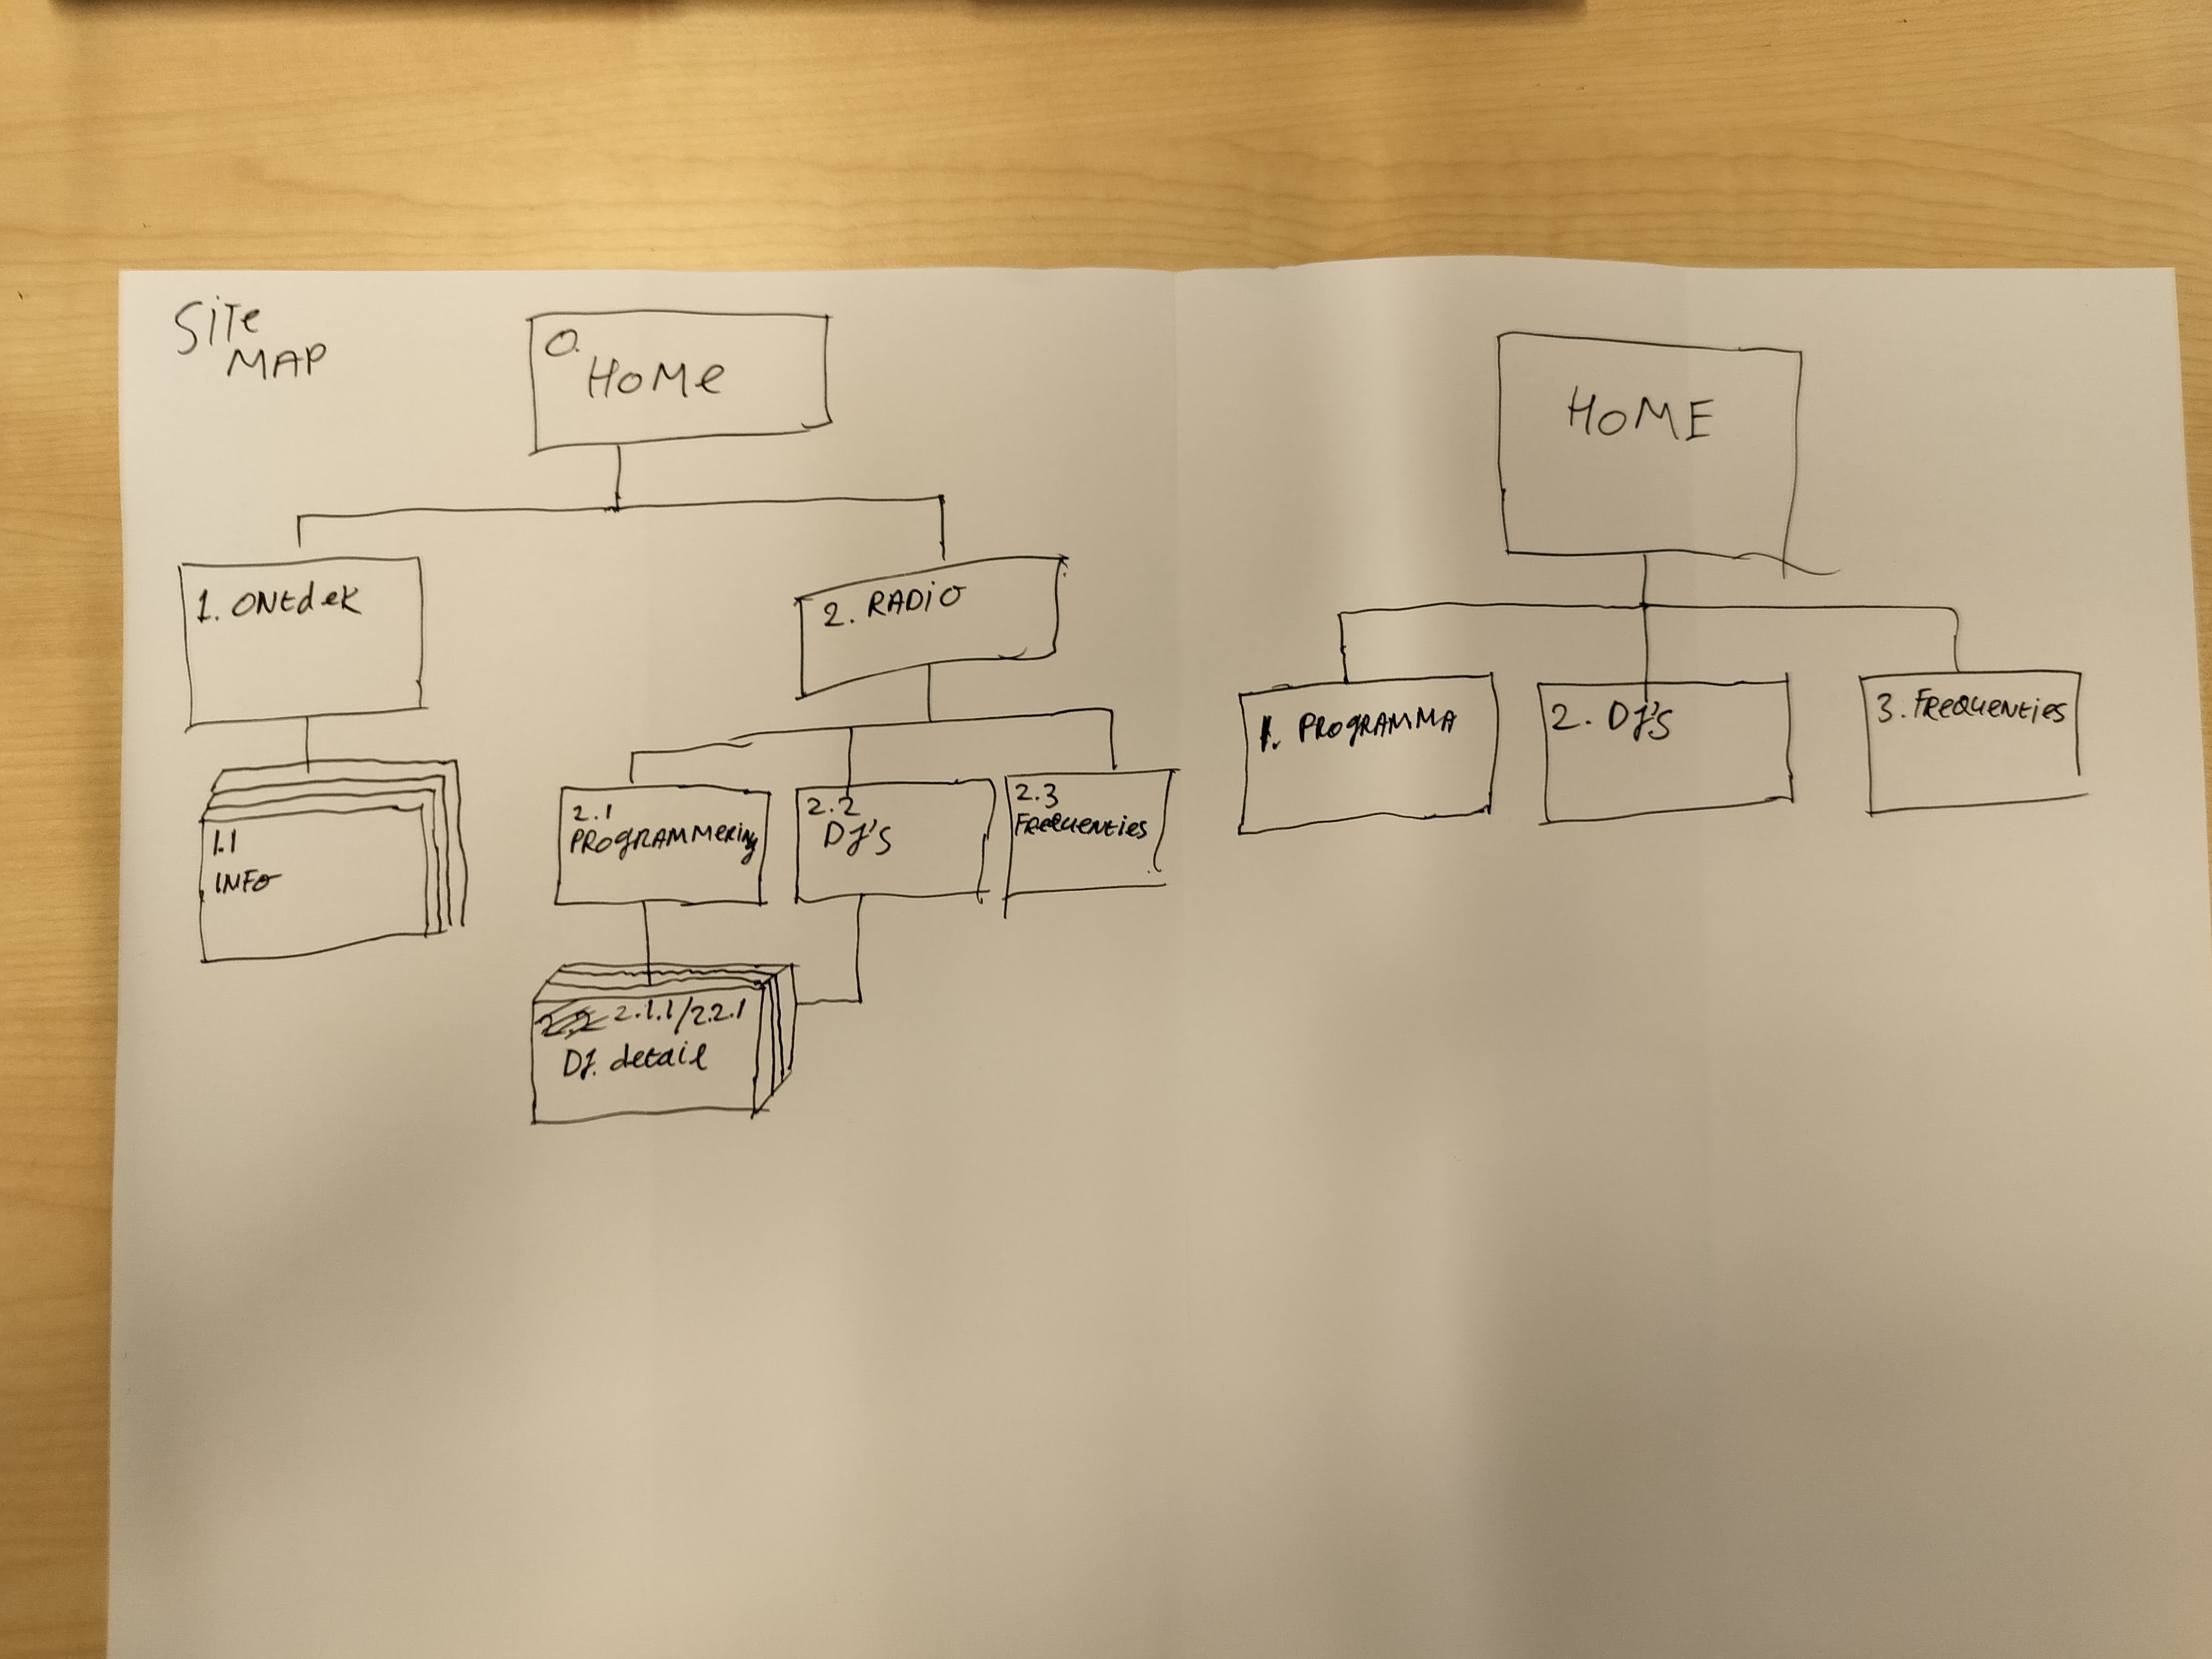 Site
MAP
0.
HoMe
1. ONtdek
2. RADiO
1.1
INFO
2.1
PROgRAMMeRing
2.2
DJ'S
2.3
FReQuENties
2.2 2.1.1/2.2.1
DJ. detail
HOME
1. PROgRAMMA
2. DJ'S
3. FReQuENties